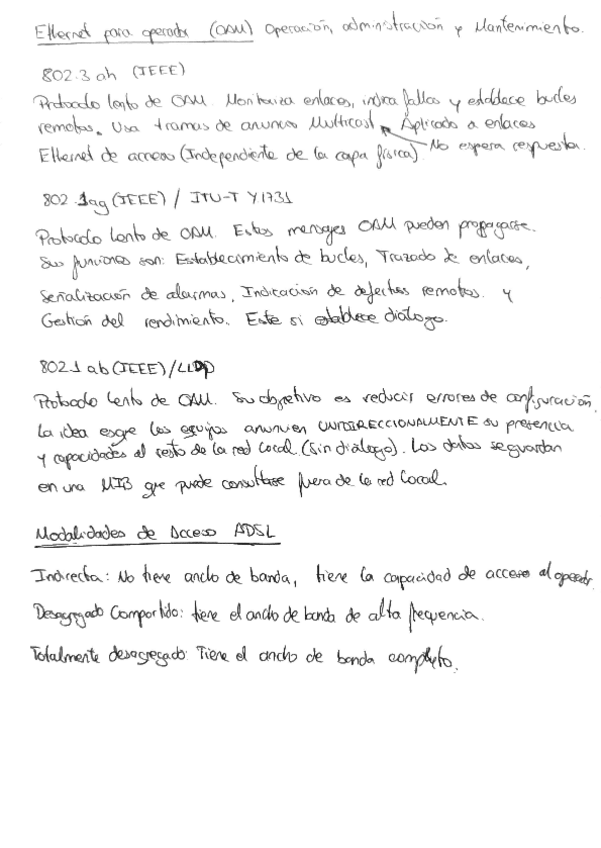 Ethernet para operador (OAM) Operación, administración y Mantenimiento.
802.3 ah (IEEE)
Protocolo lento de OAM. Monitoriza enlaces, indica fallos y establece bucles
remotos. Usa tramas de anuncio Multicast. Aplicado a enlaces
Ethernet de acceso (Independiente de la capa física). No espera respuesta.
802.1ag (IEEE) / ITU-T Y1731
Protocolo lento de OAM. Estos mensajes OAM pueden propagarse.
Sus funciones son: Establecimiento de bucles, Trazado de enlaces,
Señalización de alarmas, Indicación de defectos remotos. y
Gestión del rendimiento. Este si establece diálogo.
802.1 ab (IEEE)/LLDP
Protocolo lento de OAM. Su objetivo es reducir errores de configuración.
La idea es que los equipos anuncien UNIDIRECCIONALMENTE su presencia
y capacidades al resto de la red local (Sin diálogo). Los datos se guardan
en una MIB que puede consultarse fuera de la red local.
Modalidades de Acceso ADSL
Indirecta: No tiene ancho de banda, tiene la capacidad de acceso al operador.
Desagregado Compartido: tiene el ancho de banda de alta frecuencia.
Totalmente desagregado: Tiene el ancho de banda completo.